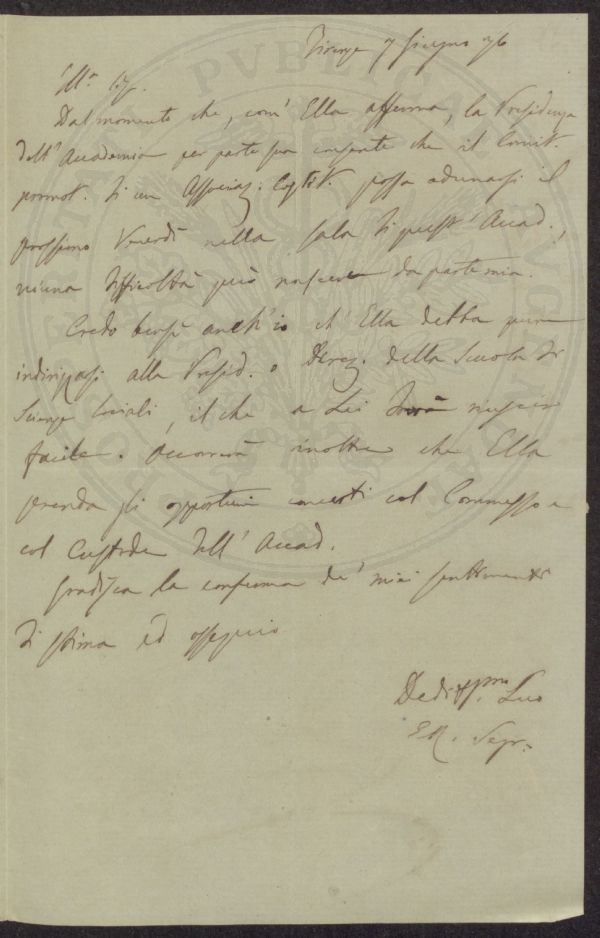 Firenze 7 Giugno 76
Ill.mo Sig.
Dal momento che, com' Ella afferma, la Presidenza
dell' Accademia per parte sua consente che il Comit.
promot. di un Associaz. Costit. possa adunarsi il
prossimo Venerdì nella sala di quest' Accad.,
niuna difficoltà può nascere da parte mia.
Credo bensì anch'io ch' Ella debba pure
indirizzarsi alla Presid. o Direz. della Scuola di
Scienze Sociali, il che a Lei sarà
facile. Occorrerà inoltre che Ella
prenda gli opportuni concerti col Commesso e
col Custode dell' Accad.
Gradisca la conferma de' miei sentimenti
di stima ed ossequio
Suo
Segr.